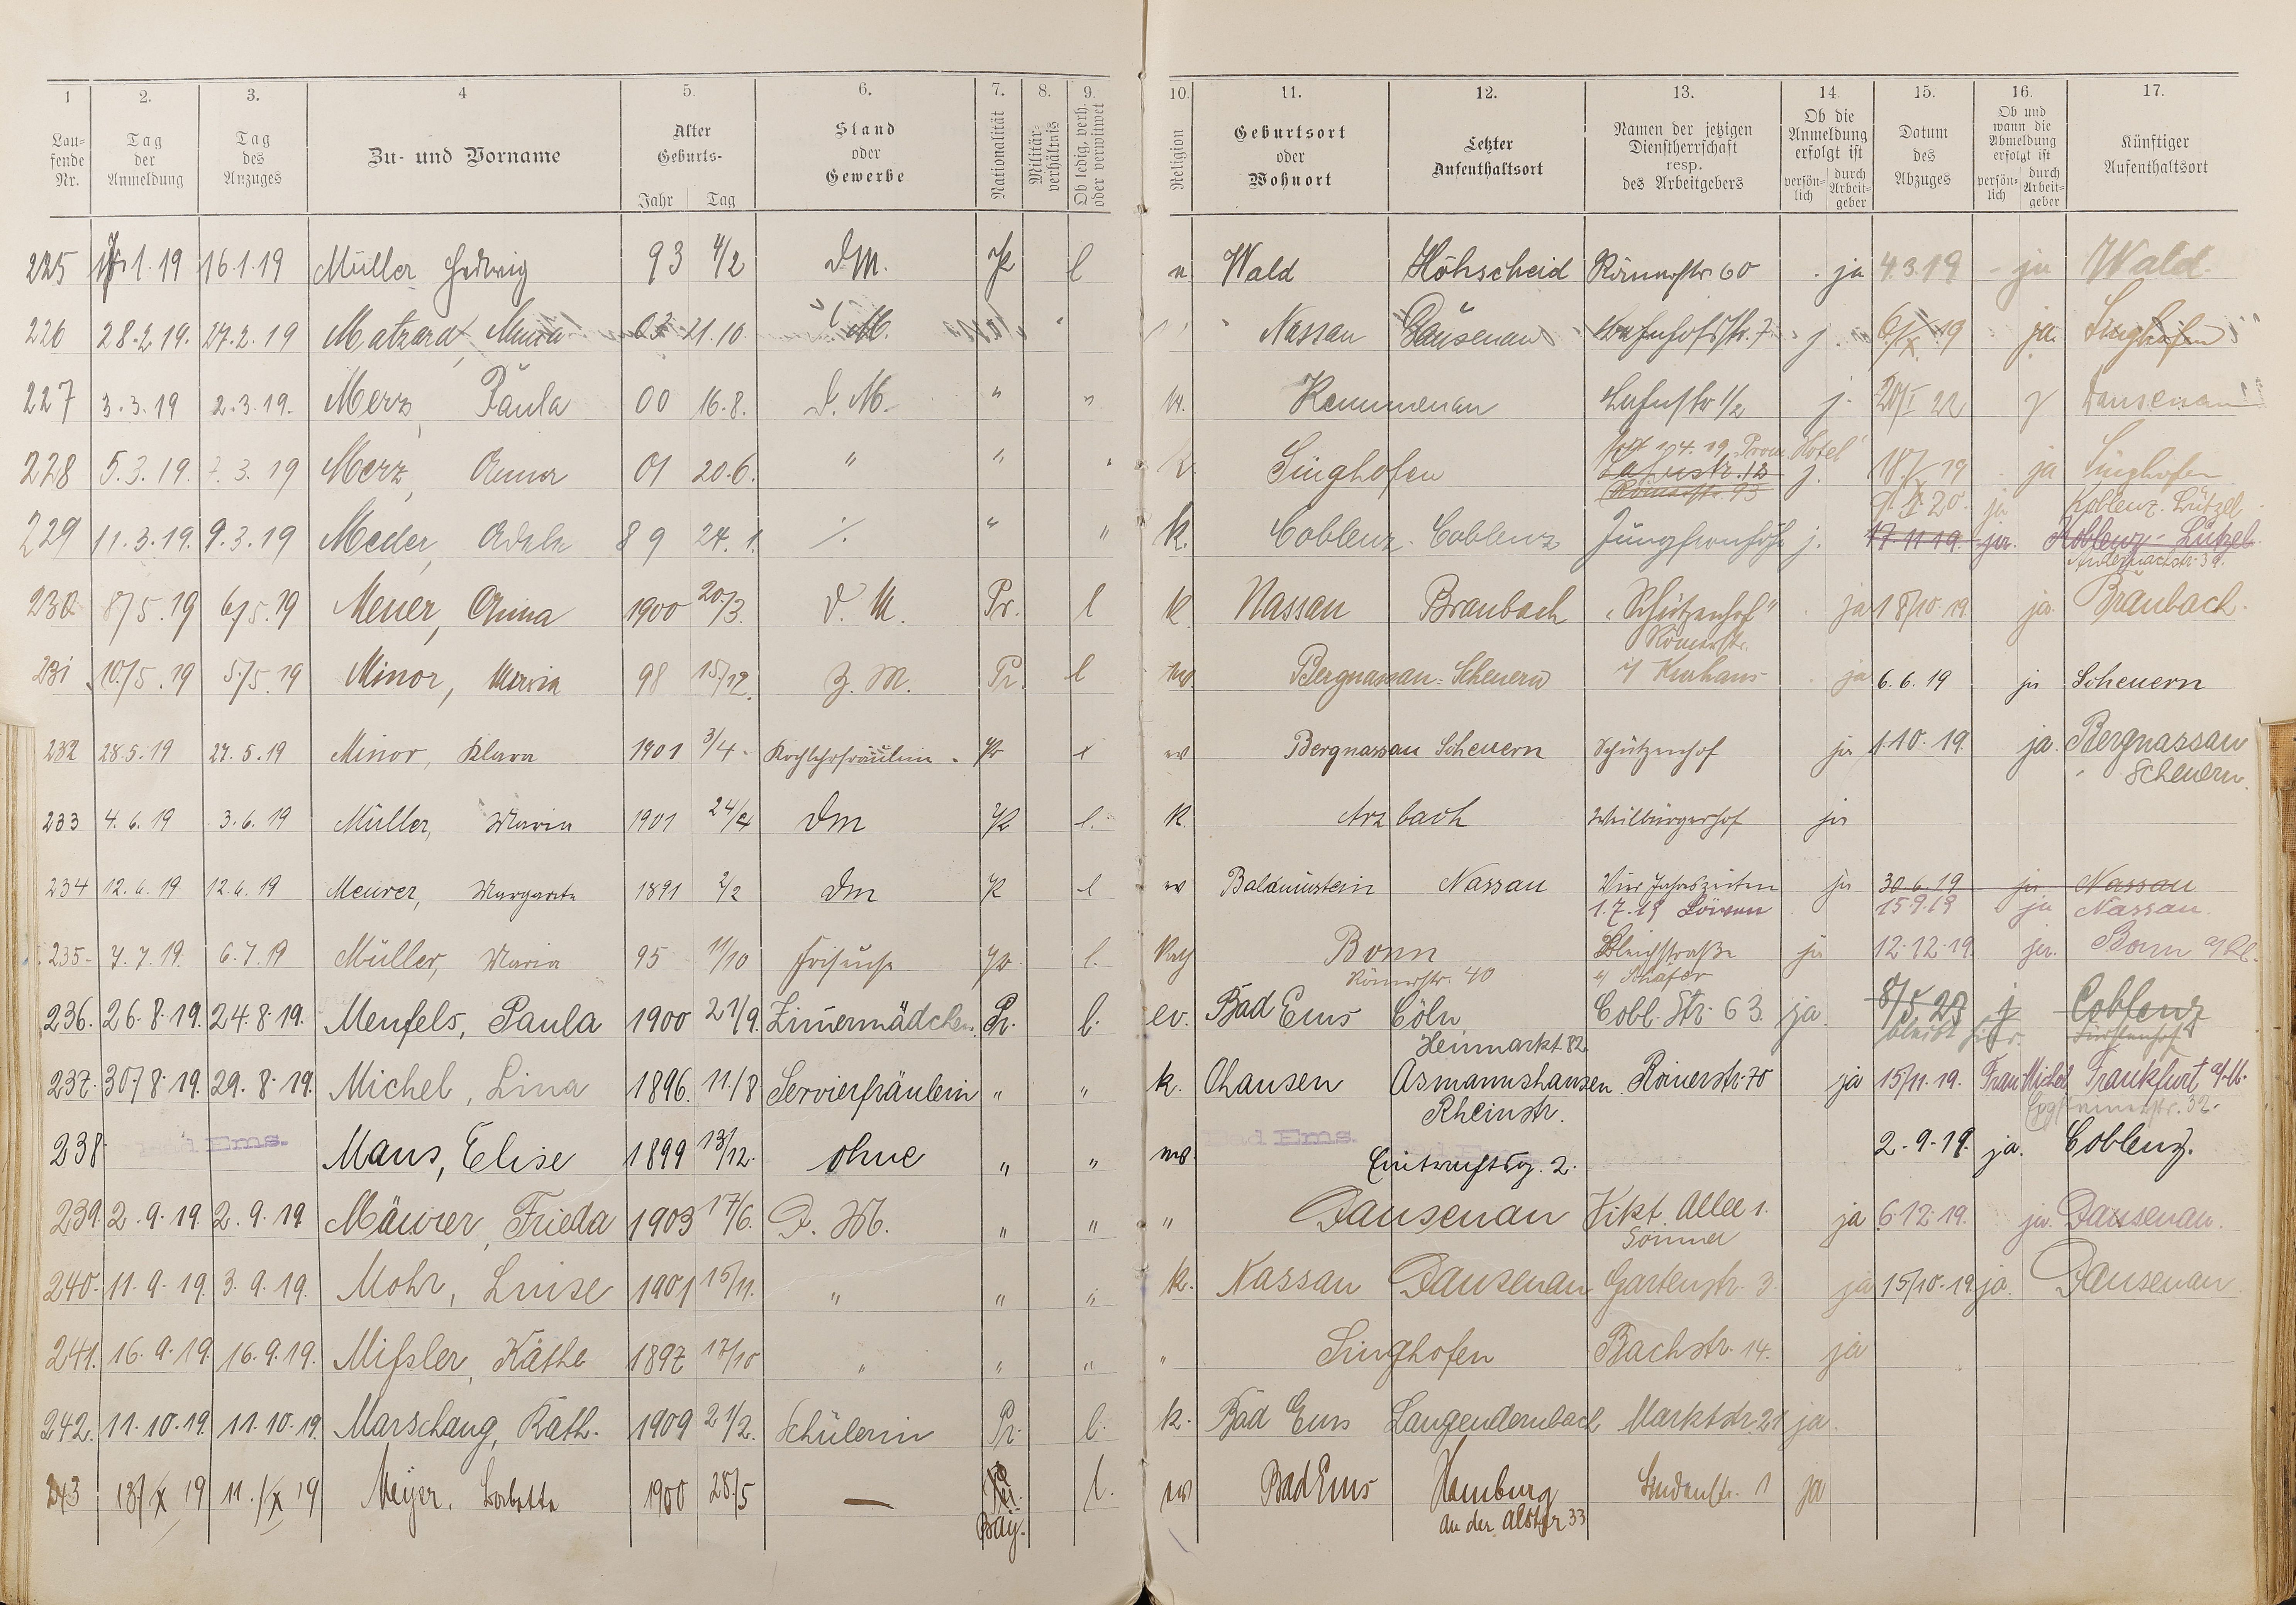 1 2. 3. 4 5. 6. 7. 8. 9. 10. 11. 12. 13. 14. 15. 16. 17.
Lau-fende Nr. Tag der Anmeldung Tag des Anzuges Zu- und Vorname Alter Geburts- Jahr Tag Stand oder Gewerbe Nationalität Militär-verhältnis Ob ledig, verh. oder verwitwet Religion Geburtsort oder Wohnort Letzter Aufenthaltsort Namen der jetzigen Dienstherrschaft resp. des Arbeitgebers Ob die Anmeldung erfolgt ist persön-lich durch Arbeit-geber Datum des Abzuges Ob und wann die Abmeldung erfolgt ist persön-lich durch Arbeit-geber Künftiger Aufenthaltsort
225 1.19 16.1.19 Müller Hedwig 93 4/2 DM. Pr l Wald Höhscheid Römerstr. 60 ja 4.3.19 ja Wald
226 28.2.19. 27.2.19 21.10. M. Nassau Dausenau Bahnhofstr. 7 j. 19 ja Singhofen
227 3.3.19 2.3.19. Merz, Paula 00 16.8. D. M. " " Kemmenau Lahnstr 1/2 j. 20/I 22 Dausenau
228 5.3.19. 3.19 Merz, Anna 01 20.6. " " Singhofen 1.4.19 Prom. Hotel
Lahnstr. 12 j. 18/X 19 ja Singhofen
Römerstr. 93
20. ja Koblenz-Lützel
229 11.3.19. 9.3.19 Meder, Adele 89 24.1. ./. " " k. Coblenz Coblenz Jungfernhöhe j. 17.11.19. ja. Koblenz-Lützel
Andernachstr. 39.
230 8/5.19 6/5.19 Meuer, Anna 1900 20/3. D. M. Pr. l k Nassau Braubach "Schützenhof" ja 18/10.19. ja. Braubach.
Römerstr.
231 10/5.19 5/5.19 Minor, Maria 98 15/12. Z. M. Pr. l ev. Bergnassau-Scheuern Kurhaus ja 6.6.19 ja Scheuern
232 28.5.19 27.5.19 Minor, Klara 1901 3/4. Kochlehrfräulein. Pr l ev Bergnassau Scheuern Schützenhof ja 1.10.19. ja. Bergnassau
Scheuern.
233 4.6.19 3.6.19 Müller, Maria 1901 24/4 Dm Pr l. k. Arzbach Weilburgerhof ja
234 12.6.19 12.6.19 Meurer, Margarete 1891 2/2 Dm Pr l ev Balduinstein Nassau Vier Jahrszeiten ja 30.6.19 ja Nassau
1.7.19 Löwen 15.9.19 ja Nassau.
235- 7.7.19. 6.7.19 Müller, Maria 95 11/10 Friseuse Pr l. Kath Bonn Bleichstraße ja 12.12.19. ja. Bonn a/Rh.
Römerstr. 40 Schäfer
236. 26.8.19. 24.8.19. Menfels, Paula 1900 21/9. Zimmermädchen. Pr. l. ev. Bad Ems Cöln Cobl. Str. 63. ja. 8/5.23 j Coblenz
Heumarkt 82 bleibt hier. Fürstenhof
237. 30/8.19. 29.8.19. Michel, Lina 1896. 11./8 Servierfräulein " " k. Ohausen Asmannshausen Römerstr. 70 ja 15/11.19. Frau Michel Frankfurt a/M.
Rheinstr. Eppsteinerstr. 32.
Bad Ems. Bad Ems.
238. Maus, Elise 1899 13/12. ohne " " ev. 2. 2.9.19. ja. Coblenz.
239. 2.9.19. 2.9.19. Mäurer, Frieda 1903 17/6. D. M. " " " Dausenau Vikt. Allee 1. ja 6.12.19. ja. Dausenau.
Sommer
240. 11.9.19. 3.9.19. Mohr, Luise 1901 15/11. " " " k. Nassau Dausenau Gartenstr. 3. ja 15/10.19. ja. Dausenau
241. 16.9.19. 16.9.19. Mißler, Käthe 1897 17/10 " " " " Singhofen Bachstr. 14. ja
242. 11.10.19. 11.10.19. Marschang, Käth. 1909 21/2. Schülerin Pr. l. k. Bad Ems Langendernbach Marktstr. 21 ja.
243 13/X 19 11./X 19 Meyer, Babette 1900 28/5 — Pr. l. ev Bad Ems Hamburg Lindenstr. 1 ja
Bay. An der Alster 33